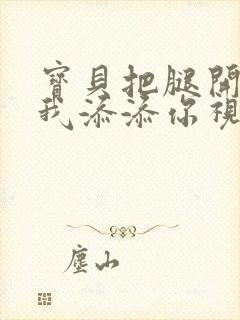 寶貝把腿開
我添添你視
塵山